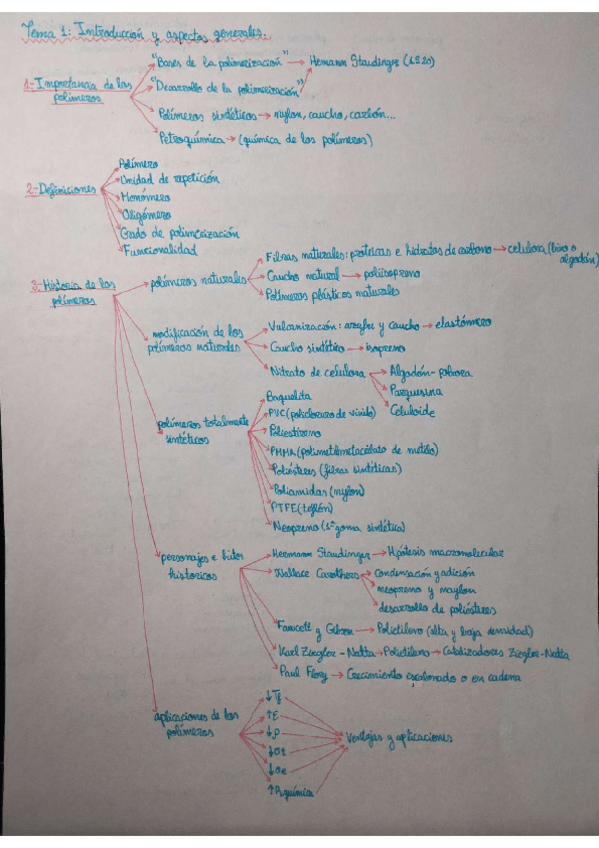 Tema 1: Introducción y aspectos generales.
1-Importancia de los polímeros
"Bases de la polimerización" → Hemann Staudinger (1920)
"Desarrollo de la polimerización"
Polímeros sintéticos → nylon, caucho, carbón...
Petroquímica → (química de los polímeros)
2-Definiciones
Polímero
Unidad de repetición
Monómero
Oligómero
Grado de polimerización
Funcionalidad
3-Historia de los polímeros
polímeros naturales
Fibras naturales: protéicas e hidratos de carbono → celulosa (lino o algodón)
Caucho natural → poliisopreno
Polímeros plásticos naturales
modificación de los polímeros naturales
Vulcanización: azufre y caucho → elastómero
Caucho sintético → isopreno
Nitrato de celulosa
Algodón-pólvora
Parquesina
Celuloide
polímeros totalmente sintéticos
Baquelita
PVC (policloruro de vinilo)
Poliestireno
PMMA (polimetilmetacrilato de metilo)
Poliésteres (fibras sintéticas)
Poliamidas (nylon)
PTFE (teflón)
Neopreno (1ª goma sintética)
personajes e hitos históricos
Hermann Staudinger → Hipótesis macromolecular
Wallace Carothers
condensación y adición
neopreno y naylon
desarrollo de poliésteres
Fawcett y Gibson → Polietileno (alta y baja densidad)
Karl Ziegler - Natta → Polietileno → Catalizadores Ziegler-Natta
Paul Flory → Crecimiento escalonado o en cadena
aplicaciones de los polímeros
↓Tf
↑E
↓ρ
↓σt
↓σe
↑R.química
Ventajas y aplicaciones